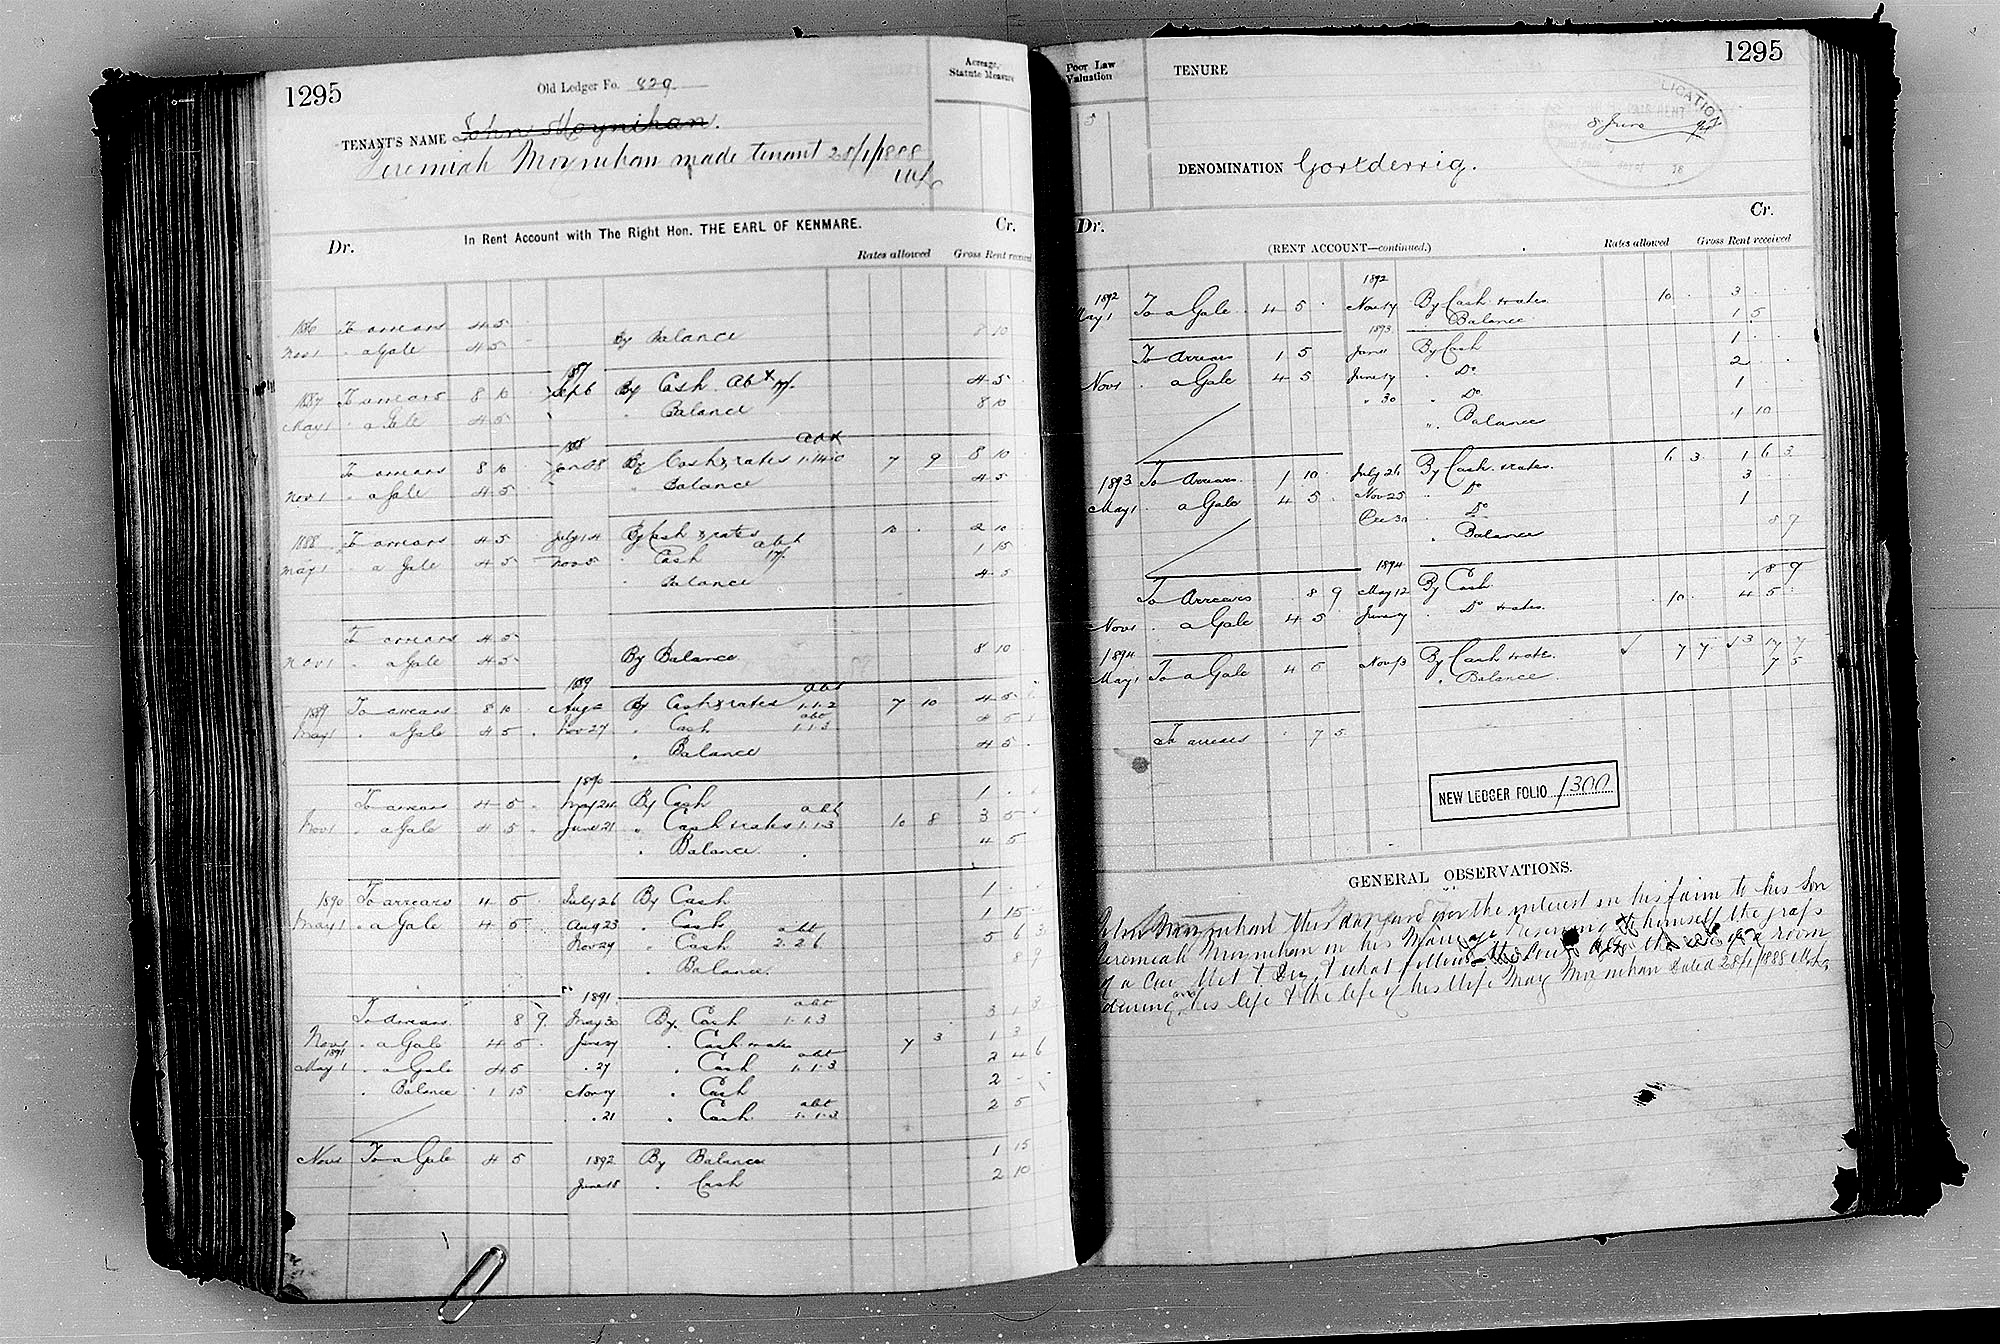 1295
Old Ledger Fo. 829
Acreage, Statute Measure
TENANT'S NAME John Moynihan.
Jeremiah Moynihan made tenant 28/1/1888
In Rent Account with The Right Hon. THE EARL OF KENMARE.
Dr. Cr.
Rates allowed Gross Rent received
1886 To arrears 4 5
Nov 1 " a Gale 4 5 By Balance 8 10
1887 To arrears 8 10 87 Sept 6 By Cash Abt 17/- 4 5
May 1 " a Gale 4 5 " Balance 8 10
88 abt
To arrears 8 10 Jan 28 By Cash & rates 1.14.0 7 9 8 10
Nov 1 " a Gale 4 5 " Balance 4 5
1888 To arrears 4 5 July 14 By Cash & rates 10 2 10
May 1 " a Gale 4 5 Nov 5 " Cash abt 17/- 1 15
" Balance 4 5
To arrears 4 5
Nov 1 " a Gale 4 5 By Balance 8 10
1889 abt
1889 To arrears 8 10 Aug 2 By Cash & rates 1.1.2 7 10 4 5
May 1 " a Gale 4 5 Nov 27 " Cash abt 1.1.3 4 5
" Balance 4 5
1890
To arrears 4 5 May 24 By Cash 1
Nov 1 " a Gale 4 5 June 21 " Cash & rates abt 1.1.3 10 8 3 5
" Balance 4 5
1890 To arrears 4 5 July 26 By Cash 1
May 1 " a Gale 4 5 Aug 23 " Cash 1 15
Nov 29 " Cash abt 2.2.6 5 6 3
" Balance 8 9
1891
To arrears 8 9 May 30 By Cash abt 1.1.3 3 1 3
Nov 1 " a Gale 4 5 June " Cash & rates 7 3 1 3
1891 May 1 " a Gale 4 5 " 27 " Cash abt 1.1.3 2 4 6
" Balance 1 15 Nov 7 " Cash 2
" 21 " Cash abt 1.1.3 2 5
Nov 1 To a Gale 4 5 1892 By Balance 1 15
June 18 " Cash 2 10
Poor Law Valuation
TENURE
1295
5
8 June
DENOMINATION Gortderrig.
Dr. Cr.
(RENT ACCOUNT—continued.)
Rates allowed Gross Rent received
1892 1892
May 1 To a Gale 4 5 Nov 17 By Cash & rates 10 3
Balance 1 5
1893
To Arrears 1 5 June 1 By Cash 1
Nov 1 " a Gale 4 5 June 17 " Do 2
" 30 " Do 1
" Balance 1 10
1893 To Arrears 1 10 July 26 By Cash & rates 6 3 1 6 3
May 1 " a Gale 4 5 Nov 25 " Do 3
Dec 30 " Do 1
" Balance 8 9
1894
To Arrears 8 9 May 12 By Cash 8 9
Nov 1 " a Gale 4 5 June " Do & rates 10 4 5
1894
May 1 To a Gale 4 5 Nov 13 By Cash & rates 7 7 3 17 7
" Balance 7 5
To arrears 7 5
NEW LEDGER FOLIO 1300
GENERAL OBSERVATIONS.
John Moynihan this day gave the interest in his farm to his Son
Jeremiah Moynihan on his Marriage Reserving to himself the grass
of a Cow & what follows the use of a room
during his life & the life of his Wife Mary Moynihan Dated 28/1/1888